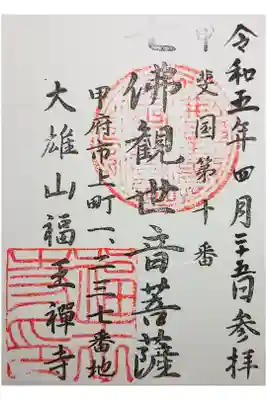 令和五年四月二十五日参拝
甲斐国第十番
七佛観世音菩薩
甲府市上町一、二三七番地
大雄山福王禪寺